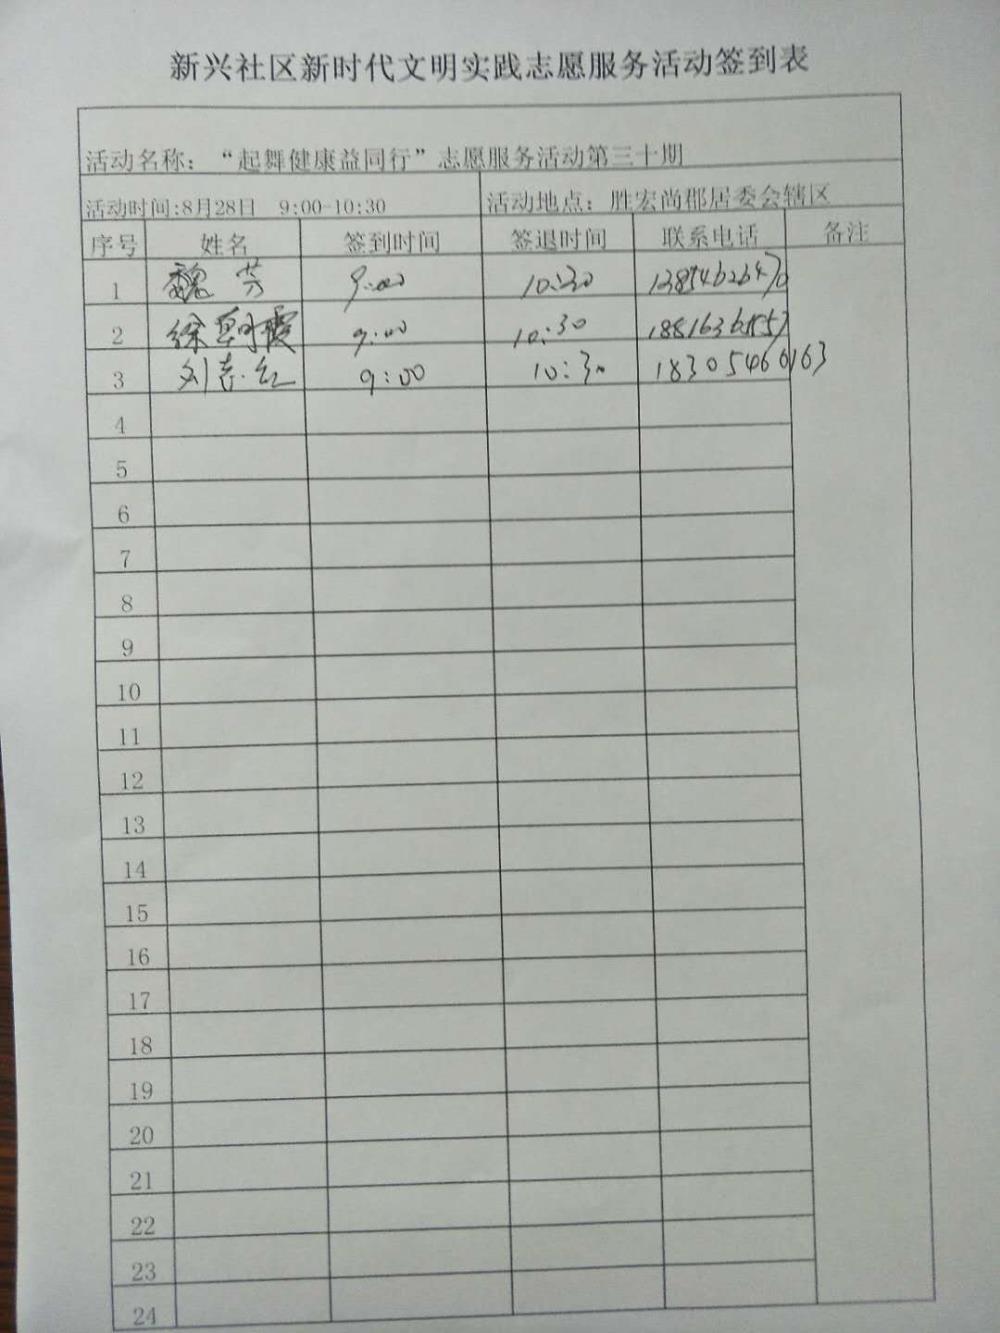 新兴社区新时代文明实践志愿服务活动签到表
活动名称：“起舞健康益同行”志愿服务活动第三十期
活动时间:8月28日 9:00-10:30 活动地点：胜宏尚郡居委会辖区
序号 姓名 签到时间 签退时间 联系电话 备注
1 魏芳 9:00 10:30 13854626470
2 徐朝霞 9:00 10:30
3 刘志红 9:00 10:30 18305460163
4
5
6
7
8
9
10
11
12
13
14
15
16
17
18
19
20
21
22
23
24